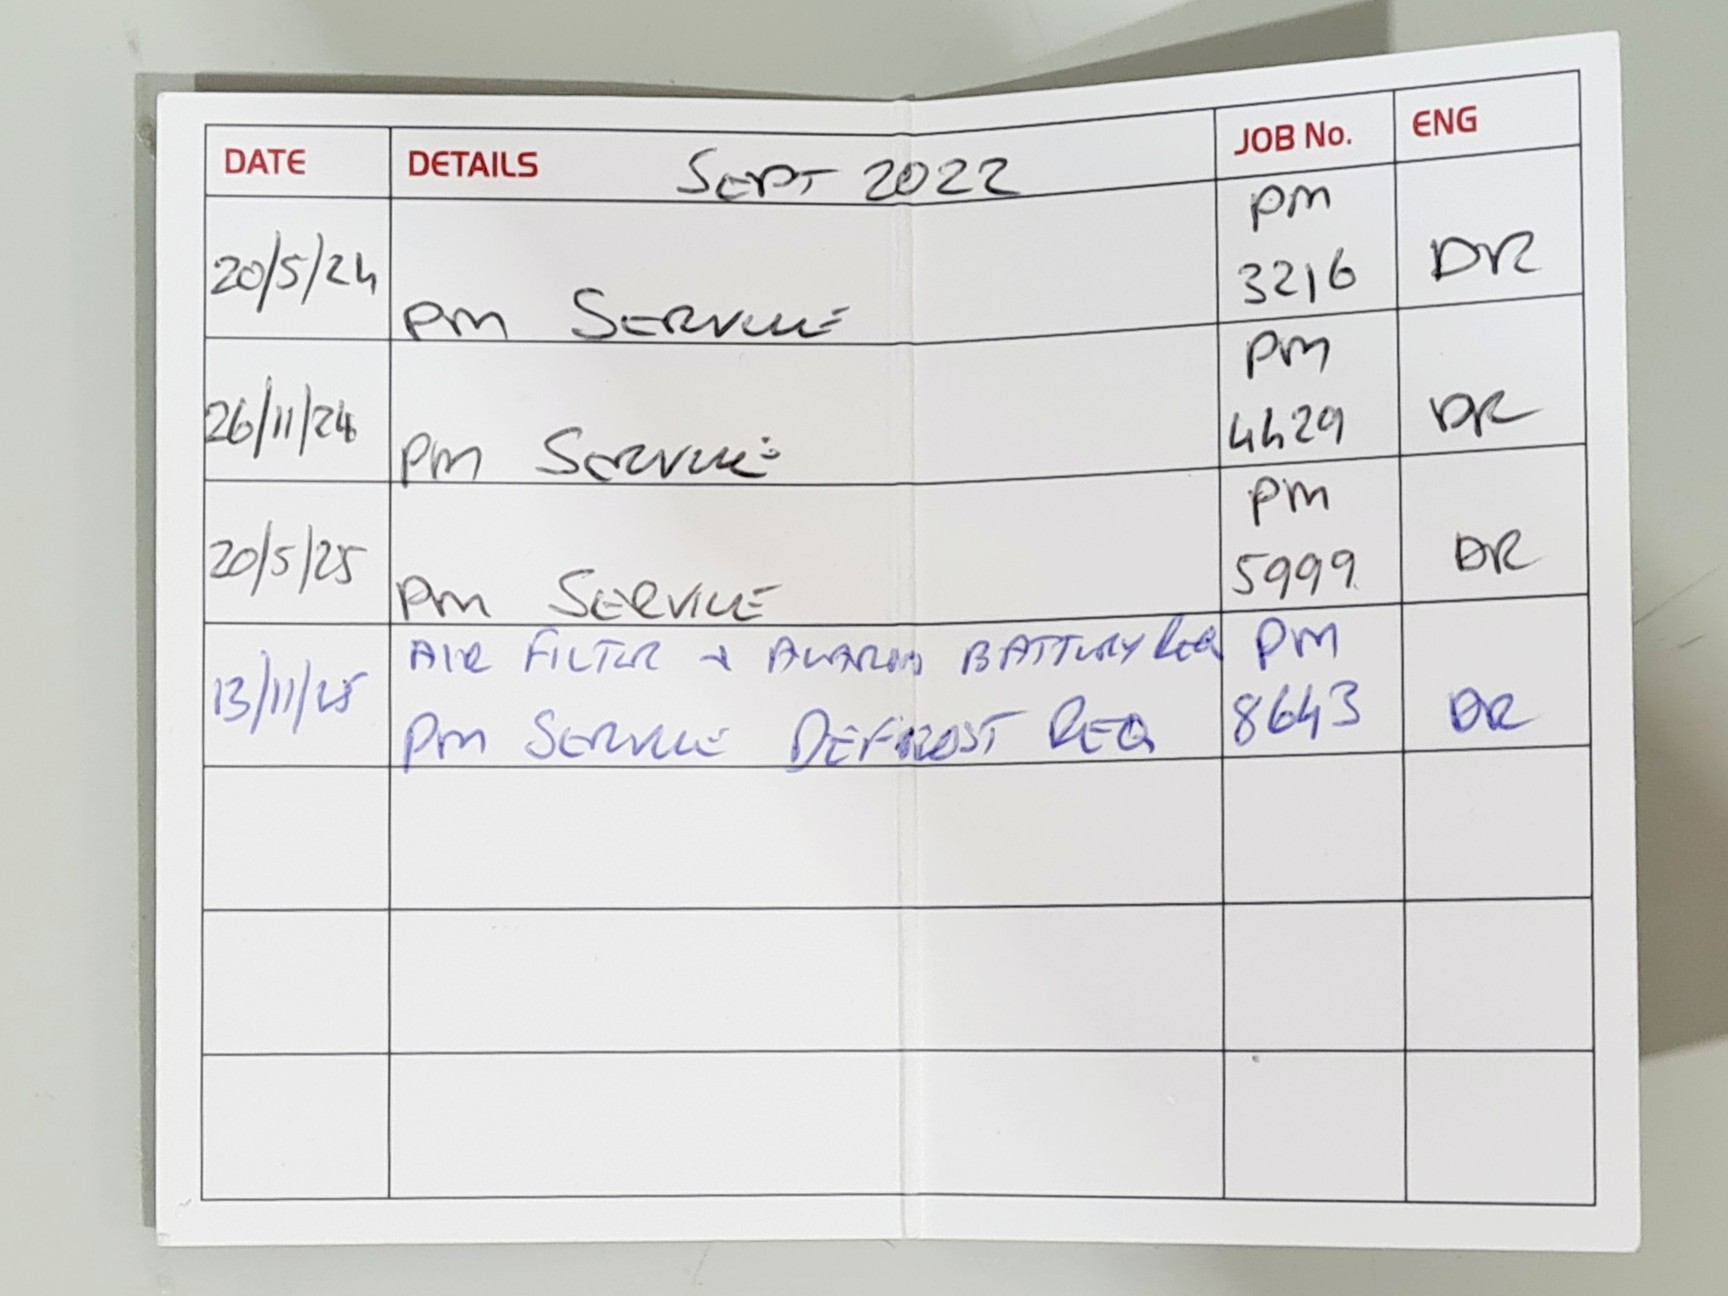 DATE DETAILS SEPT 2022 JOB No. ENG
20/5/24 PM SERVICE PM 3216 DR
26/11/24 PM SERVICE PM 4429 DR
20/5/25 PM SERVICE PM 5999 DR
AIR FILTER + ALARM BATTERY REQ PM
13/11/25 PM SERVICE DEFROST REQ 8643 DR